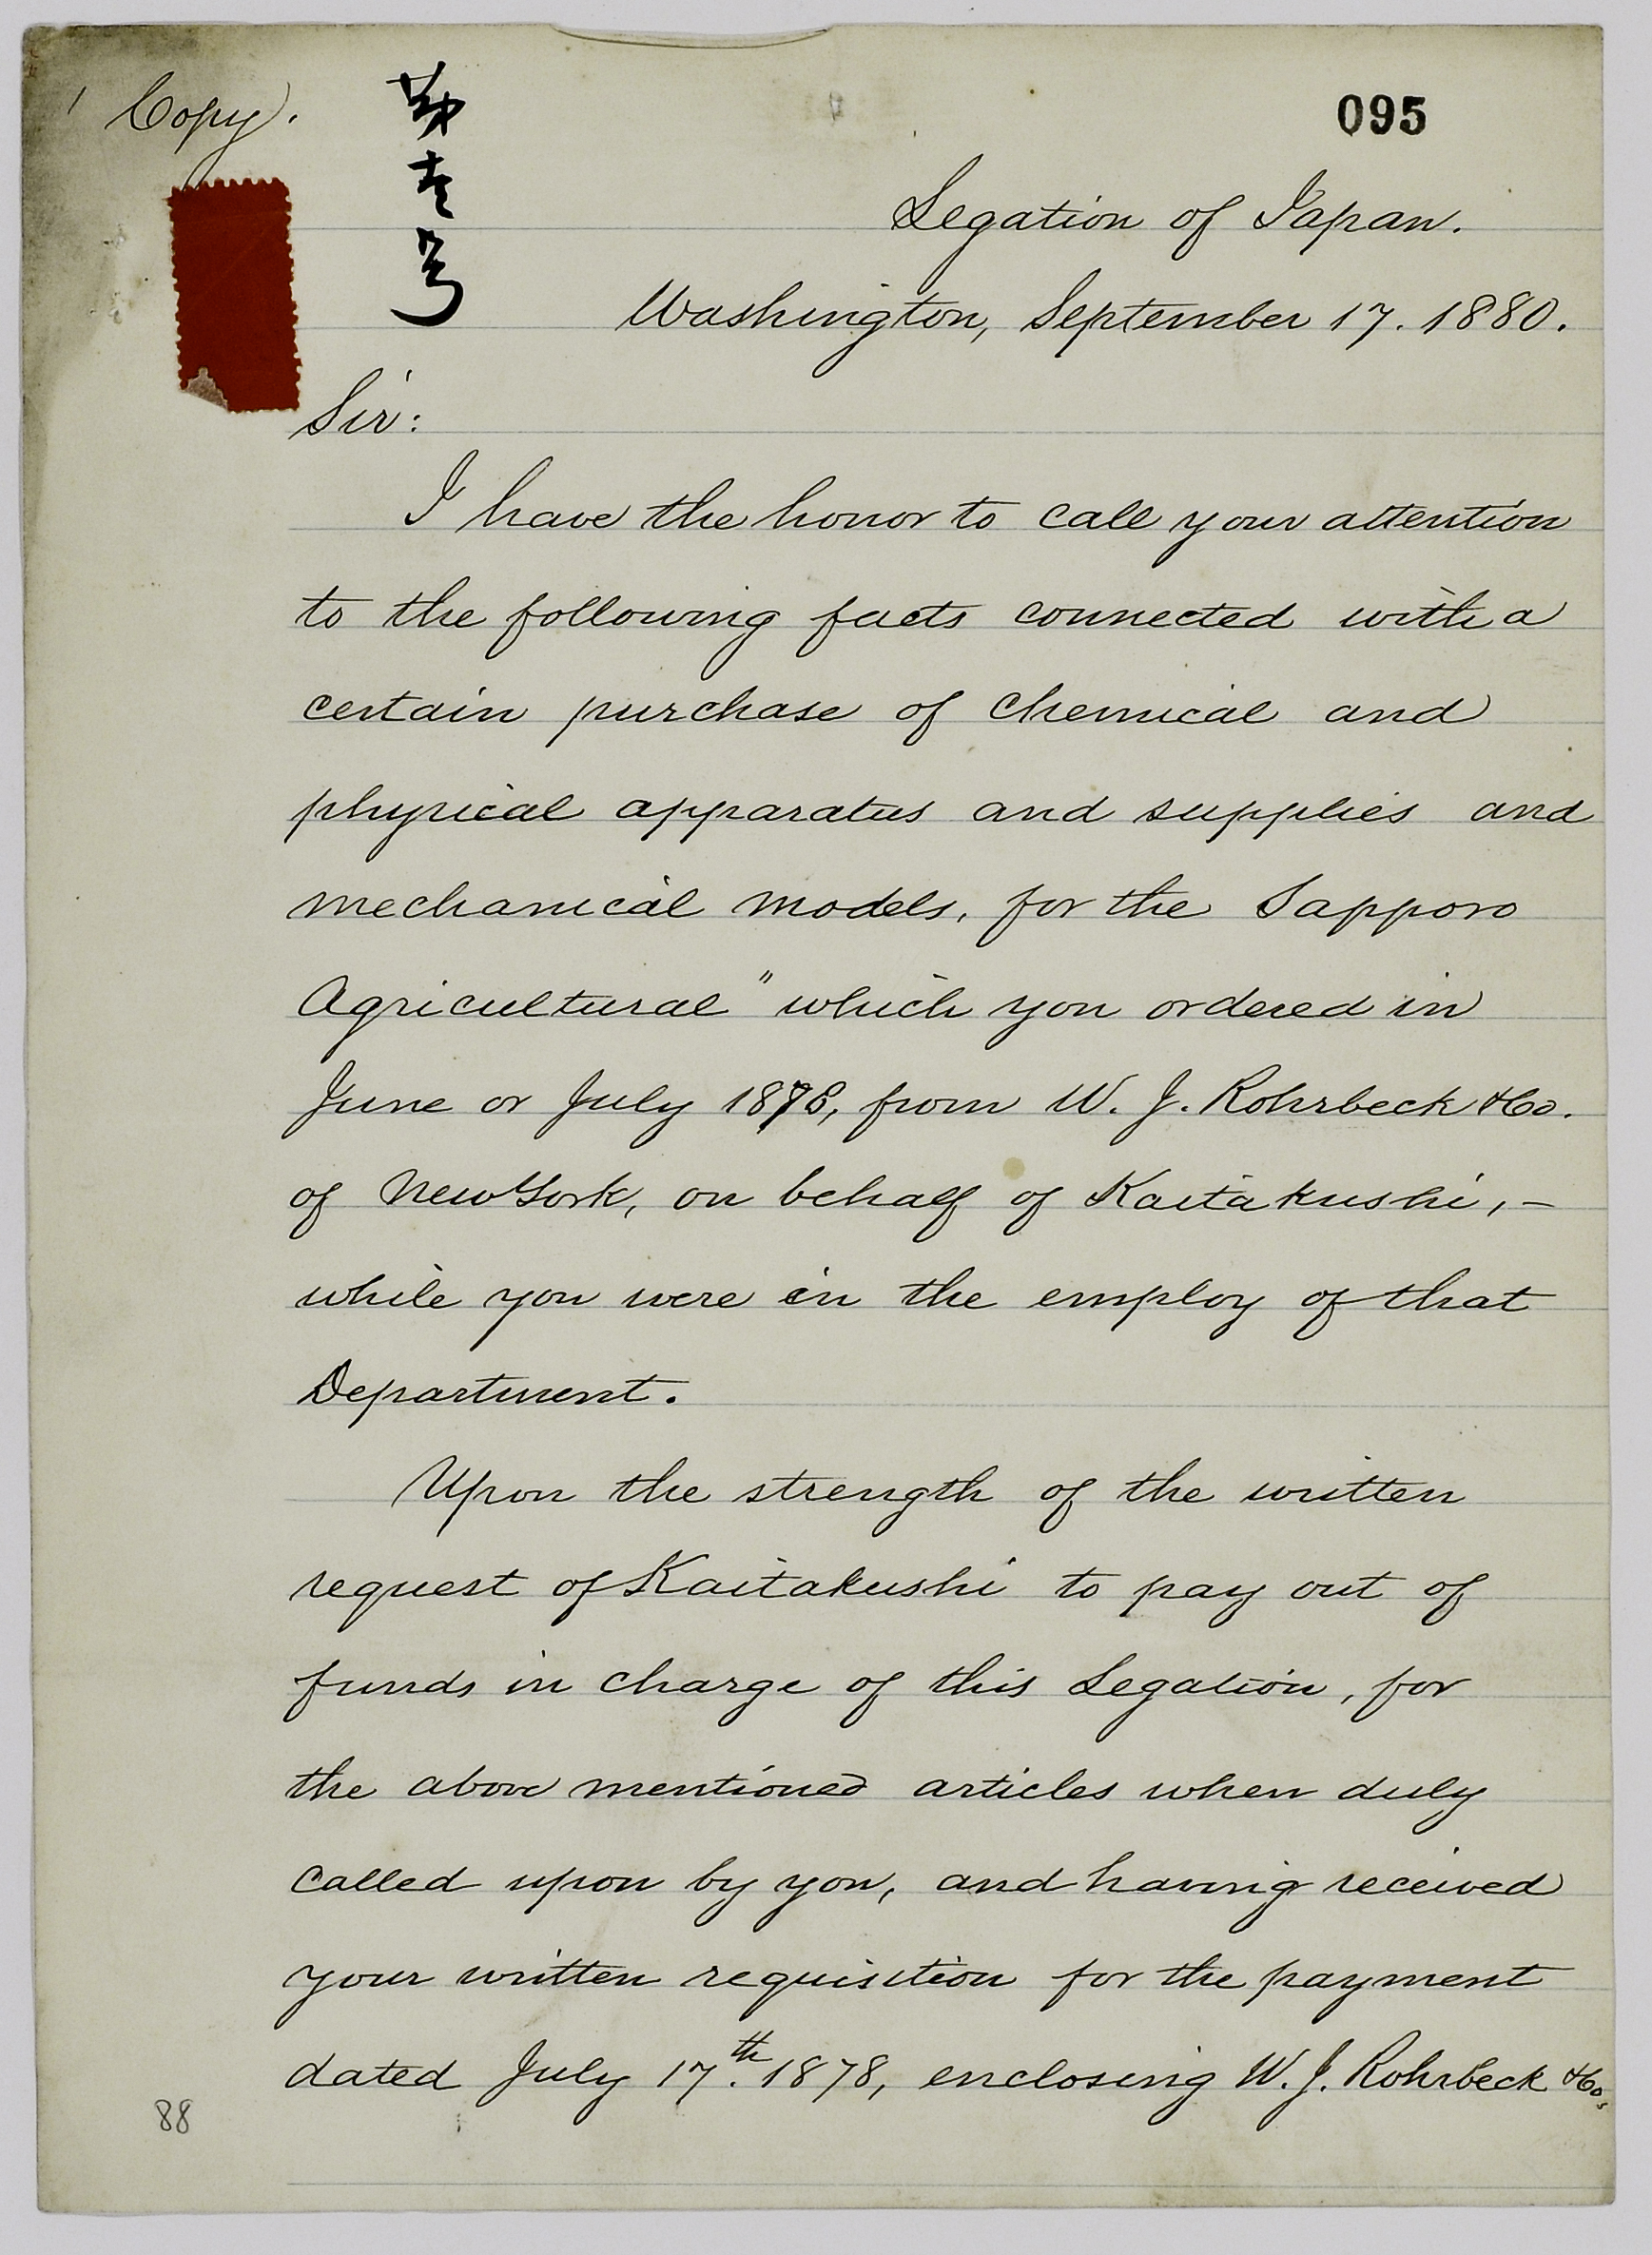 Copy.
壱号
095
Legation of Japan.
Washington, September 17. 1880.
Sir:
I have the honor to call your attention
to the following facts connected with a
certain purchase of chemical and
physical apparatus and supplies and
mechanical models, for the Sapporo
Agricultural" which you ordered in
June or July 1878, from W. J. Rohrbeck & Co.
of New York, on behalf of Kaitakushi, –
while you were in the employ of that
Department.
Upon the strength of the written
request of Kaitakushi to pay out of
funds in charge of this Legation, for
the above mentioned articles when duly
called upon by you, and having received
your written requisition for the payment
dated July 17th. 1878, enclosing W. J. Rohrbeck & Co.s
88